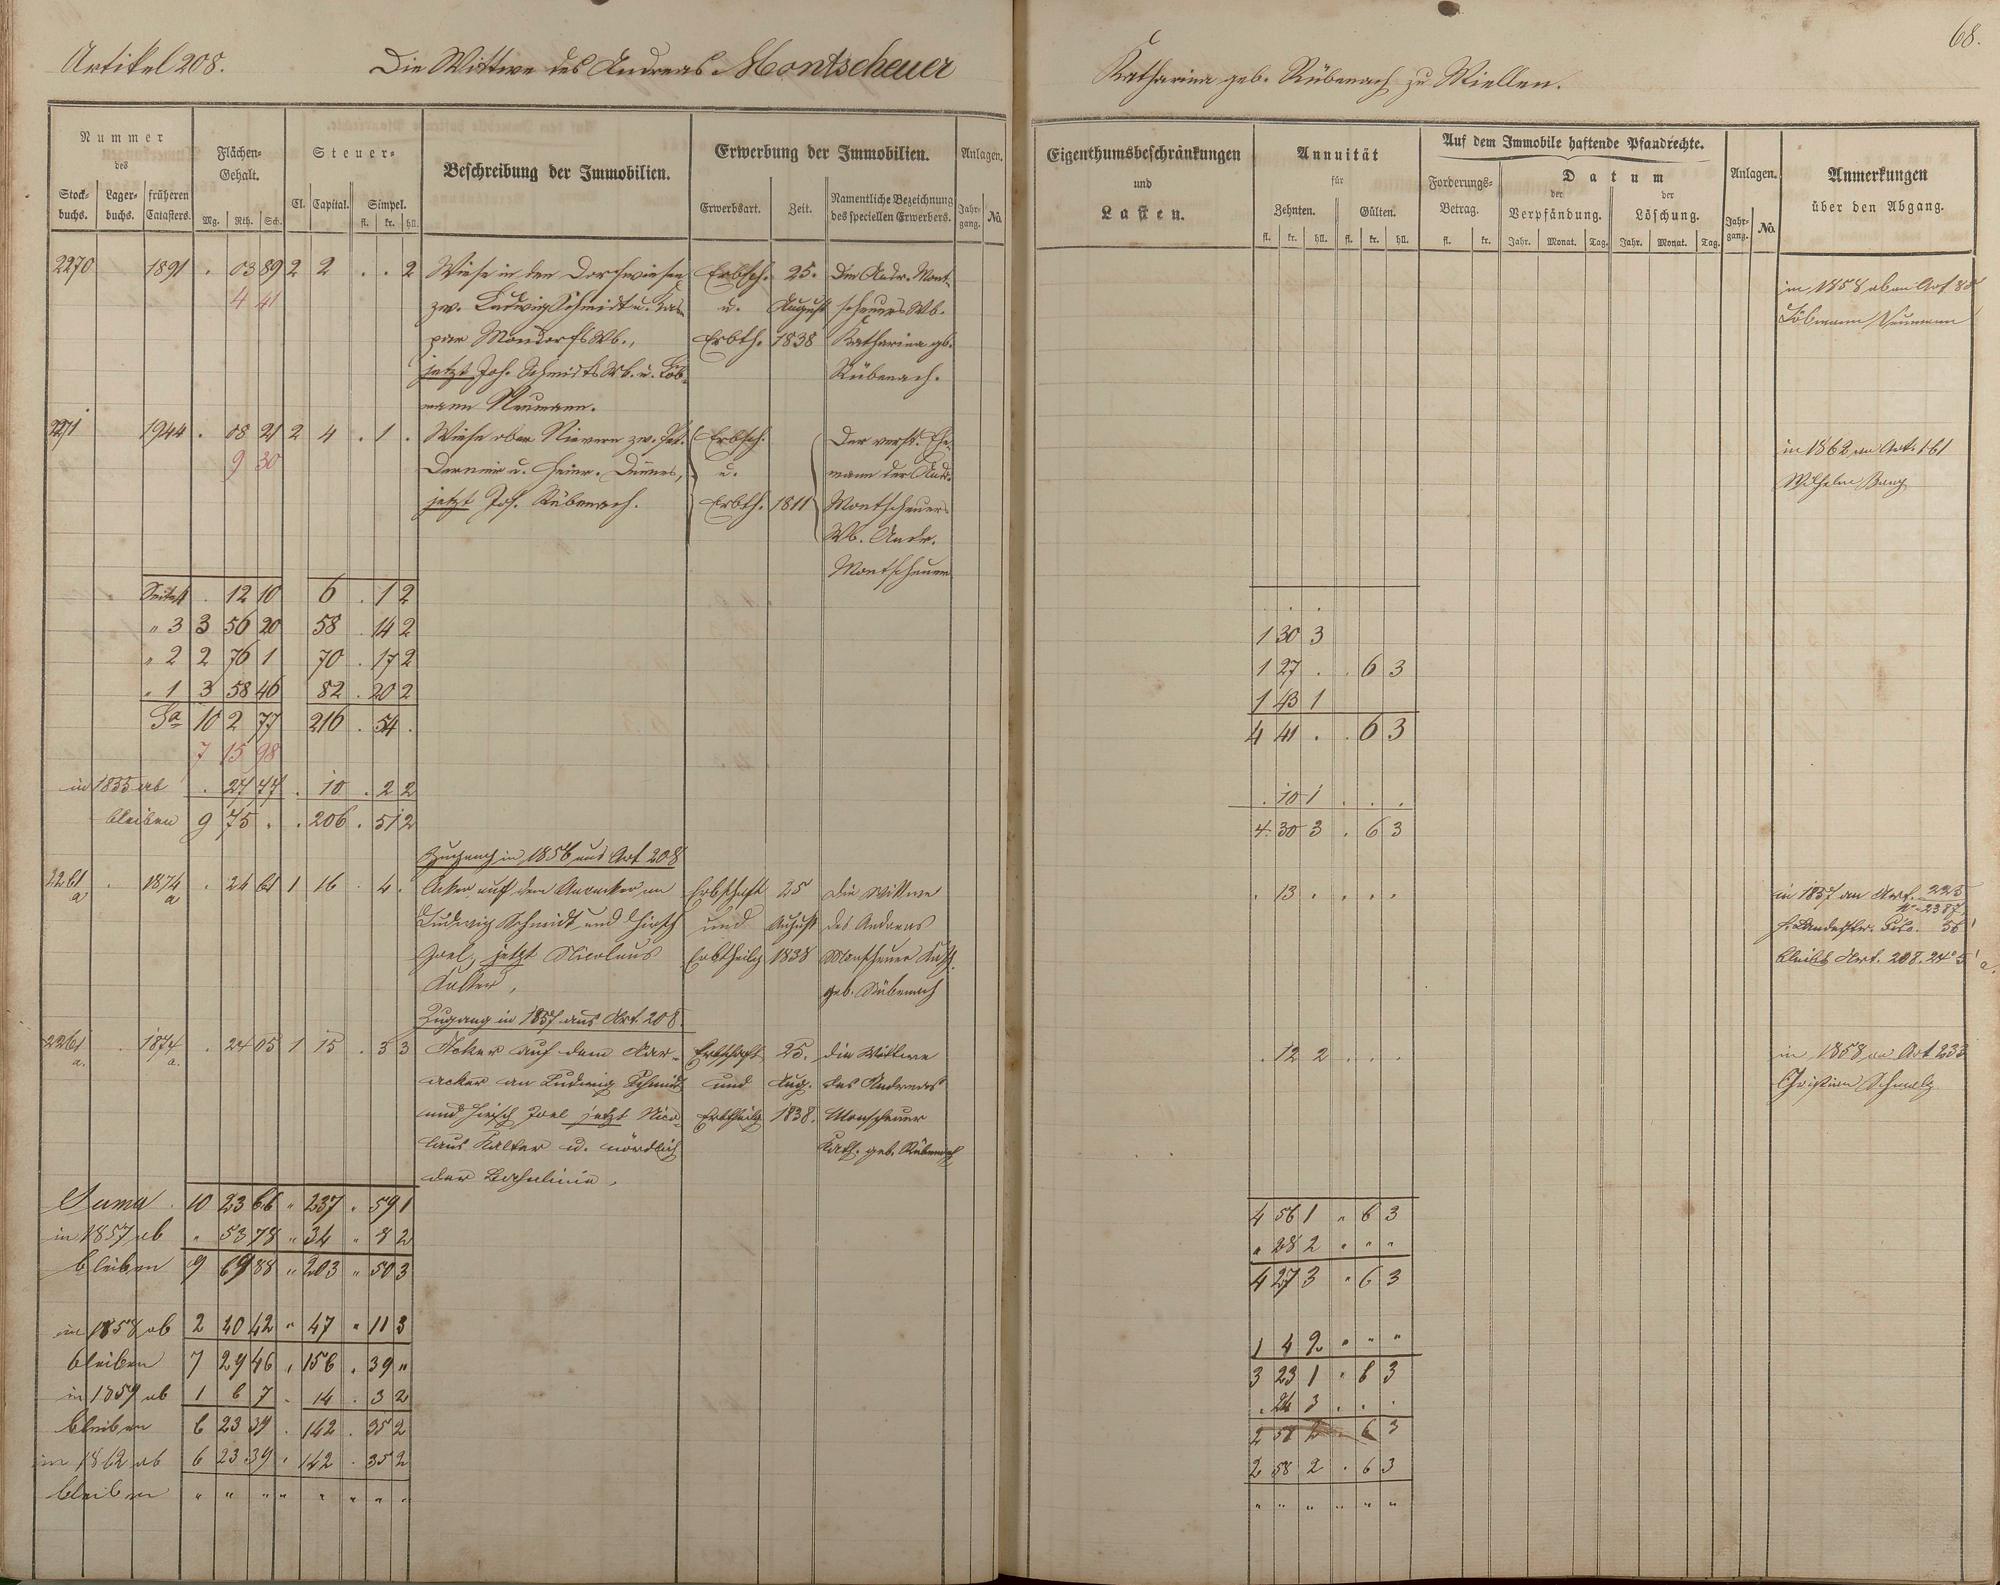 68.
Artikel 208. Die Wittwe des Andreas Montscheuer
Katharina geb. Rübenach zu Miellen.
Nummer des
Stock-buchs. Lager-buchs. früheren Catasters.
Flächen-Gehalt.
Mg. Rth. Sch.
Steuer-
Cl. Capital. Simpel.
fl. kr. hll.
Beschreibung der Immobilien.
Erwerbung der Immobilien.
Erwerbsart. Zeit. Namentliche Bezeichnung des speciellen Erwerbers.
Anlagen.
Jahr-gang. No.
Eigenthumsbeschränkungen
und
Lasten.
Annuität
für
Zehnten. Gülten.
fl. kr. hll. fl. kr. hll.
Auf dem Immobile haftende Pfandrechte.
Forderungs-Betrag.
fl. kr.
Datum
der Verpfändung. der Löschung.
Jahr. Monat. Tag. Jahr. Monat. Tag.
Anlagen.
Jahr-gang. No.
Anmerkungen
über den Abgang.
2270 1891 . 03 89 2 2 . . 2 Wiese in den Dorfwiesen Erbsch. 25. Die Andr. Mont-
4 41 zw. Ludwig Schmidt u. Kas- u. August scheuers Wb.
par Mondorfs Wb., Erbth. 1838 Katharina gb.
jetzt Joh. Schmidts Wb. u. Löb- Rübenach.
mann Neumann.
in 1858 ab an Art 80
Löbmann Neumann
2271 1944 . 08 21 2 4 . 1 . Wiese ober Nievern zw. Pet. Erbsch. Der verst. Ehe-
9 30 u. Heinr. u. mann der Andr.
jetzt Jos. Rübenach. Erbth. 1811 Montscheuers
Wb. Andr.
Montscheuer
in 1862 an Art. 161
Wilhelm
Seite 4 . 12 10 6 . 1 2
" 3 3 56 20 58 . 14 2 1 30 3
" 2 2 76 1 70 . 17 2 1 27 . . 6 3
" 1 3 58 46 82 . 20 2 1 43 1
Sa 10 2 77 216 . 54 . 4 41 . . 6 3
7 15 98
in 1855 ab . 27 77 . 10 . 2 2 . 10 1 . . .
bleiben 9 75 . . 206 . 51 2 4 30 3 . 6 3
Zugang in 1856 aus Art 208
2261 a . 1874 a . 24 61 1 16 . 4 . Acker auf dem Auacker an Erbschaft 25 Die Wittwe . 13 . . . .
Ludwig Schmidt und Hirsch und August des Andreas
Joel, jetzt Nicolaus Erbtheilg 1838 Monscheuer Kath.
Kalter, geb. Rübenach
in 1857 an Art. 225
No. 2387,
bleibt Art. 208. 24° 5' a.
Zugang in 1857 aus Art. 208.
2261 a. . 1874 a. . 24 05 1 15 . 3 3 Acker auf dem Aar- Erbschaft 25. die Wittwe . 12 2 . . .
acker an Ludwig Schmidt und Aug. des Andreas
und Hirsch Joel jetzt Nico- Erbtheilg 1838. Monscheuer
laus Kalter u. nördlich Kath. geb. Rübenach
der Bahnlinie.
in 1858 an Art 233
Christian Schmelz
Suma . 10 23 66 " 237 " 59 1 4 56 1 " 6 3
in 1857 ab " 53 78 " 34 " 8 2 " 28 2 " " "
bleiben 9 69 88 " 203 " 50 3 4 27 3 " 6 3
in 1858 ab 2 40 42 " 47 " 11 3 1 4 2 " " "
bleiben 7 29 46 " 156 . 39 " 3 23 1 " 6 3
in 1859 ab 1 6 7 . 14 . 3 2 . 24 3 . . .
bleiben 6 23 39 . 142 . 35 2 2 58 2 . 6 3
in 1862 ab 6 23 39 . 142 . 35 2 2 58 2 . 6 3
bleiben " " " " " " " " " " " " " "